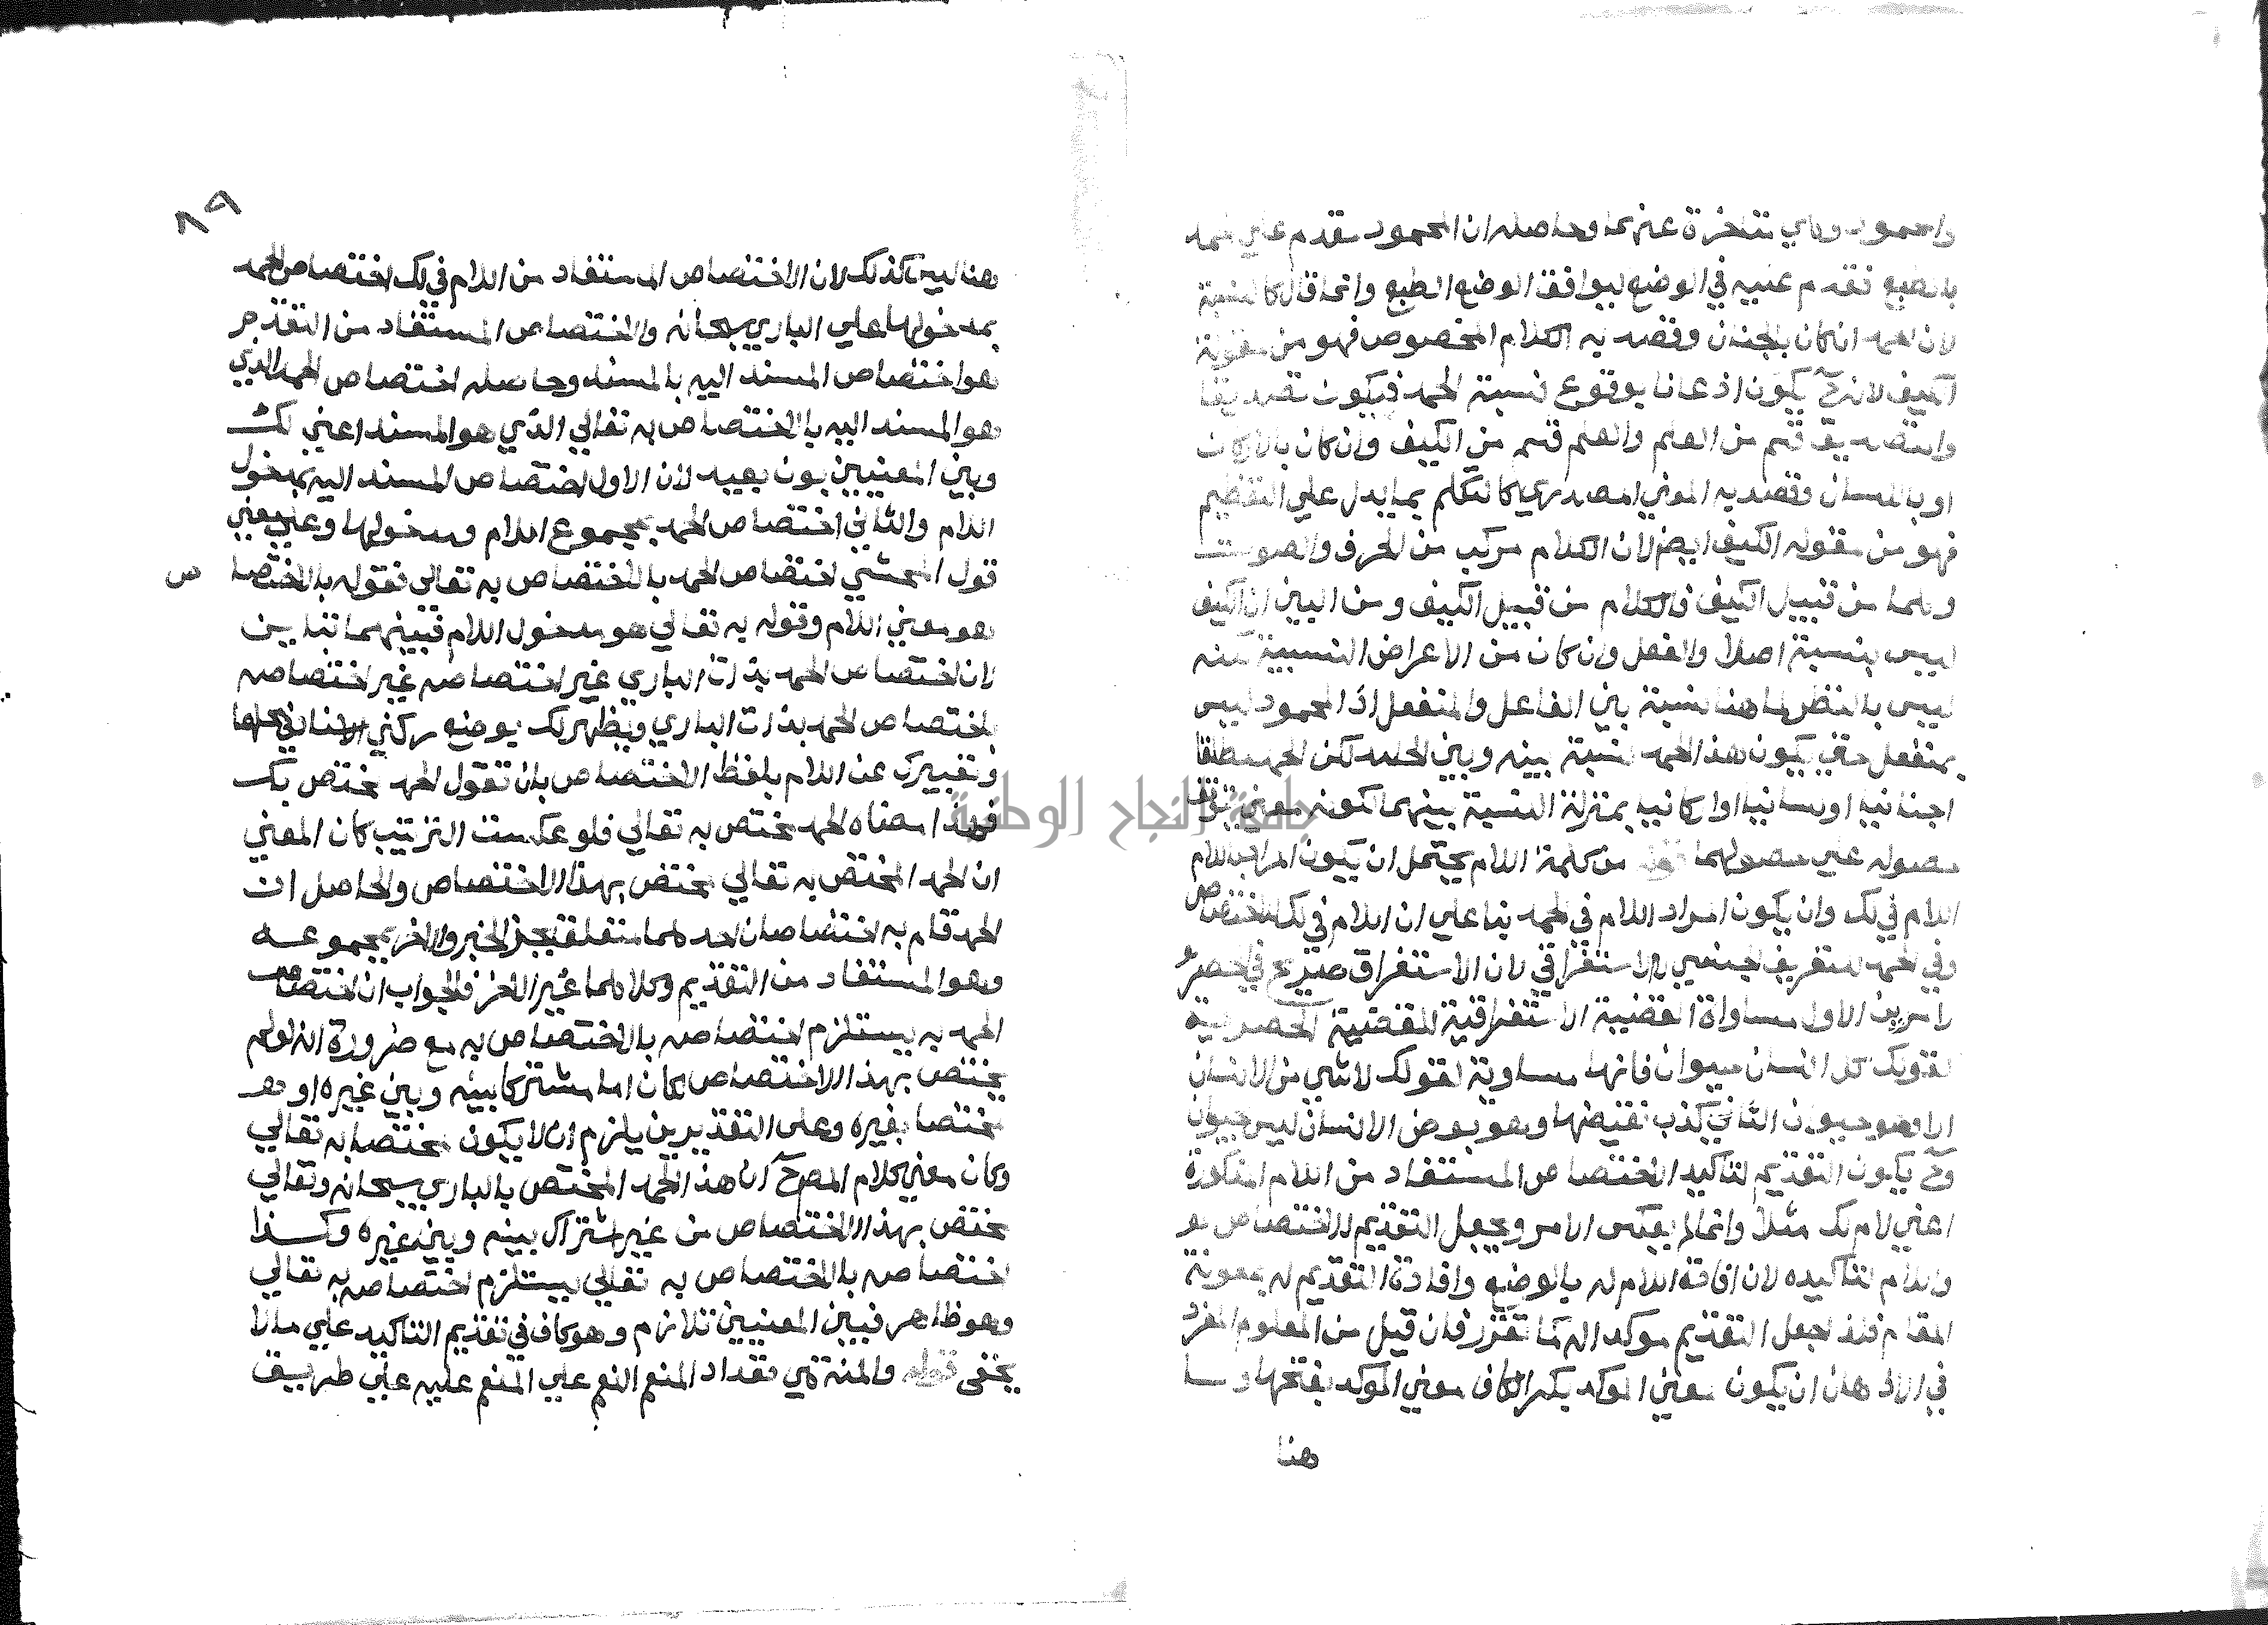 والمحمود وهي متاخرة عنهما وحاصله ان المحمود مقدم علي حمد
بالطبع فقدم عنيه في الوضع ليوافق الوضع الطبع وانما قال كالنسبة
لان الحمد ان كان بالجنان وقصد به الكلام المخصوص فهو من مقولة
الكيف لانه ح يكون اذعانا بوقوع نسبة الحمد فيكون تصديقا
والتصديق قسم من العلم والعلم قسم من الكيف وان كان بالاركان
او باللسان وقصد به المعني المصدري كالتكلم بما يدل علي التعظيم
فهو من مقوله الكيف ايضا لان الكلام مركب من الحرف والصوت
وهما من قبيل الكيف فالكلام من قبيل الكيف ومن البين ان الكيف
ليس بنسبة اصلا والفعل وان كان من الاعراض النسبية لكنه
ليس بالنظر لما هنا نسبة بين الفاعل والمنفعل اذ المحمود ليس
بمنفعل حتي يكون هذا الحمد نسبة بينه وبين الحامد لكن الحمد مطلقا
اجنانيا او لسانيا او اركانيا بمنزلة النسبة بينهما لكونه معني يتوقف
حصوله علي حصولهما قوله من كلمة اللام يحتمل ان يكون المراد باللام
اللام في لك وان يكون المراد اللام في الحمد بنا علي ان اللام في لك للاختصاص
وفي الحمد للتعريف الجنسي والاستغراقي لان الاستغراق صريح في الحصر
مساواة القضية الاستغراقية للقضية الحصرية
لقولك كل انسان حيوان فانها مساوية لقولك لا شي من الانسان
الا وهو حيوان الثاني كذب نقيضها وهو بعض الانسان ليس حيوان
وح يكون التقديم لتاكيد الاختصاص المستفاد من اللام المذكورة
اعني لام لك مثلا وانما لم يعكس الامر ويجعل التقديم للاختصاص
واللام لتاكيده لان افادة اللام له بالوضع وافادة التقديم له بمعونة
المقام فلذا جعل التقديم موكدا له كما تقرر فان قيل من المعلوم المقرر
في الاذهان ان يكون معني الموكد بكسر الكاف معني الموكد بفتحها وما
هنا
٨٩
هنا ليس كذلك لان الاختصاص المستفاد من اللام في لك اختصاص الحمد
بمدخولها علي الباري سبحانه والاختصاص المستفاد من التقديم
هو اختصاص المسند اليه بالمسند وحاصله اختصاص الحمد الذي
هو المسند اليه بالاختصاص به تعالي الذي هو المسند اعني لك
وبين المعنيين بون بعيد لان الاول اختصاص المسند اليه بمدخول
اللام والثاني اختصاص الحمد بمجموع اللام ومدخولها وعلي معني
قول المحشي اختصاص الحمد بالاختصاص به تعالي فقوله بالاختصا
ص
هو معني اللام وقوله به تعالي هو مدخول اللام فبينهما تباين
لان اختصاص الحمد بذات الباري غير اختصاصه غير اختصاصه
باختصاص الحمد بذات الباري ويظهر لك بوضع ركني الاسناد في محلهما
وتعبيرك عن اللام بلفظ الاختصاص بان تقول الحمد مختص بك
فهذا معناه الحمد مختص به تعالي فلو عكست الترتيب كان المعني
ان الحمد المختص به تعالي مختص بهذا الاختصاص والحاصل ان
الحمد قام به اختصاصان احدهما متعلق بجزء الخبر والاخر بمجموعه
وهو المستفاد من التقديم وكلاهما غير الاخر فالجواب ان اختصاص
الحمد به يستلزم اختصاصه بالاختصاص به مع ضرورة انه لو لم
يختص بهذا الاختصاص لكان اما مشتركا بينه وبين غيره او
مختصا بغيره وعلي التقديرين يلزم ان لا يكون مختصا به تعالي
وكان معني كلام المصرح ان هذا الحمد المختص بالباري سبحانه وتعالي
مختص بهذا الاختصاص من غير اشتراك بينه وبين غيره وكذا
اختصاصه بالاختصاص به تعالي يستلزم اختصاصه به تعالي
وهو ظاهر فبين المعنيين تلازم وهو كاف في تقديم التاكيد علي ما لا
يخفي قوله والمنة هي تعداد المنعم النعم علي المنعم عليه علي طريق
جامعة النجاح الوطنية